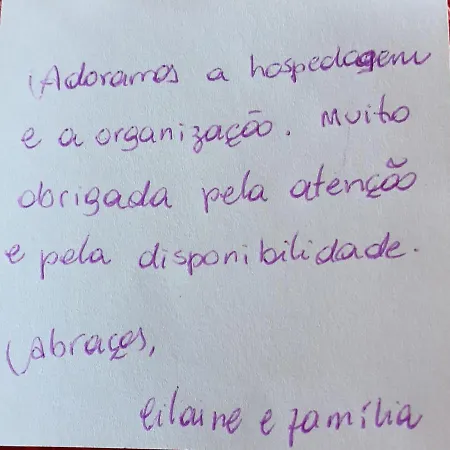 Adoramos a hospedagem
e a organização. Muito
obrigada pela atenção
e pela disponibilidade.
Abraços,
Eilaine e família